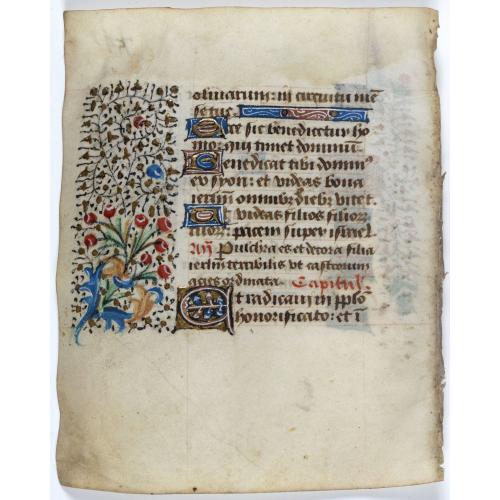 oliuarum: in circuitu me
se tue
Ecce sic benedicetur ho
mo: qui timet dominum
Benedicat tibi domin⁹
ex syon: et videas bona
ierl̄m omnibꝰ diebꝰ vite t̄.
Et videas filios filiorū
tuorū: pacem super israel
An̄ Pulchra es et decora filia
ierl̄m terribilis vt castrorum
acies ordinata Capitul̄
Et radicaui in pplo
honorificato: et ī